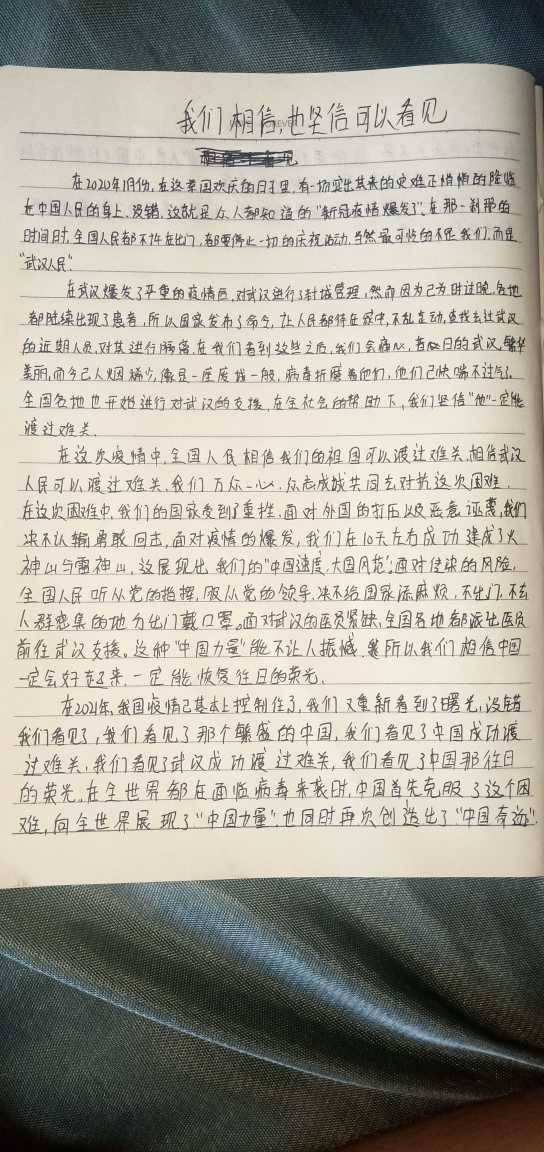 我们相信,也坚信可以看见
在2020年1月份,在这举国欢庆的日子里,有一场突出其来的灾难正悄悄的降临
在中国人民的身上,没错,这就是众人都知道的“新冠疫情爆发了”,在那一刹那的
时间时,全国人民都不许在出门,都要停止一切的庆祝活动,当然最可怜的不是我们,而是
“武汉人民”.
在武汉爆发了严重的疫情后,对武汉进行了封城管理,然而因为已为时过晚,各地
都陆续出现了患者,所以国家发布了命令,让人民都待在家中,不乱走动,查找去过武汉
的近期人员,对其进行隔离,在我们看到这些之后,我们会痛心,昔日的武汉,繁华
美丽,而今已人烟稀少,像是一座废城一般,病毒折磨着他们,他们已快喘不过气了,
全国各地也开始进行对武汉的支援,在全社会的帮助下,我们坚信“他”一定能
渡过难关.
在这次疫情中,全国人民相信我们的祖国可以渡过难关,相信武汉
人民可以渡过难关,我们万众一心,众志成城共同去对抗这次困难,
在这次困难中,我们的国家受到了重挫,面对外国的打压以及恶意诬蔑,我们
决不认输勇敢回击,面对疫情的爆发,我们在10天左右成功建成了火
神山与雷神山,这展现出我们的“中国速度,大国风范”,面对传染的风险,
全国人民听从党的指挥,服从党的领导,决不给国家添麻烦,不出门,不去
人群密集的地方出门戴口罩。面对武汉的医员紧缺,全国各地都派出医员
前往武汉支援。这种“中国力量”能不让人振憾,所以我们相信中国
一定会好起来,一定能恢复往日的荣光,
在2021年,我国疫情已基本上控制住了,我们又重新看到了曙光,没错
我们看见了,我们看见了那个繁盛的中国,我们看见了中国成功渡
过难关,我们看见了武汉成功渡过难关,我们看见了中国那往日
的荣光,在全世界都在面临病毒来袭时,中国首先克服了这个困
难,向全世界展现了“中国力量”,也同时再次创造出了“中国奇迹”.